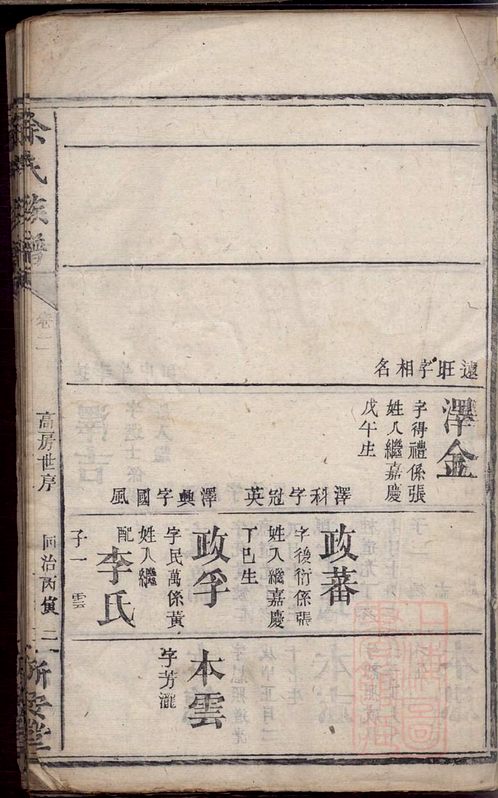 遠旺字相名
澤金
字得禮係張
姓入繼嘉慶
戊午生
澤科字冠英
澤興字國風
政蕃
字後衍係張
姓入繼嘉慶
丁巳生
政孚
字民萬係黃
姓入繼
配李氏
子一 雲
本雲
字芳
徐氏族譜
卷二
高房世序
同治丙寅
二